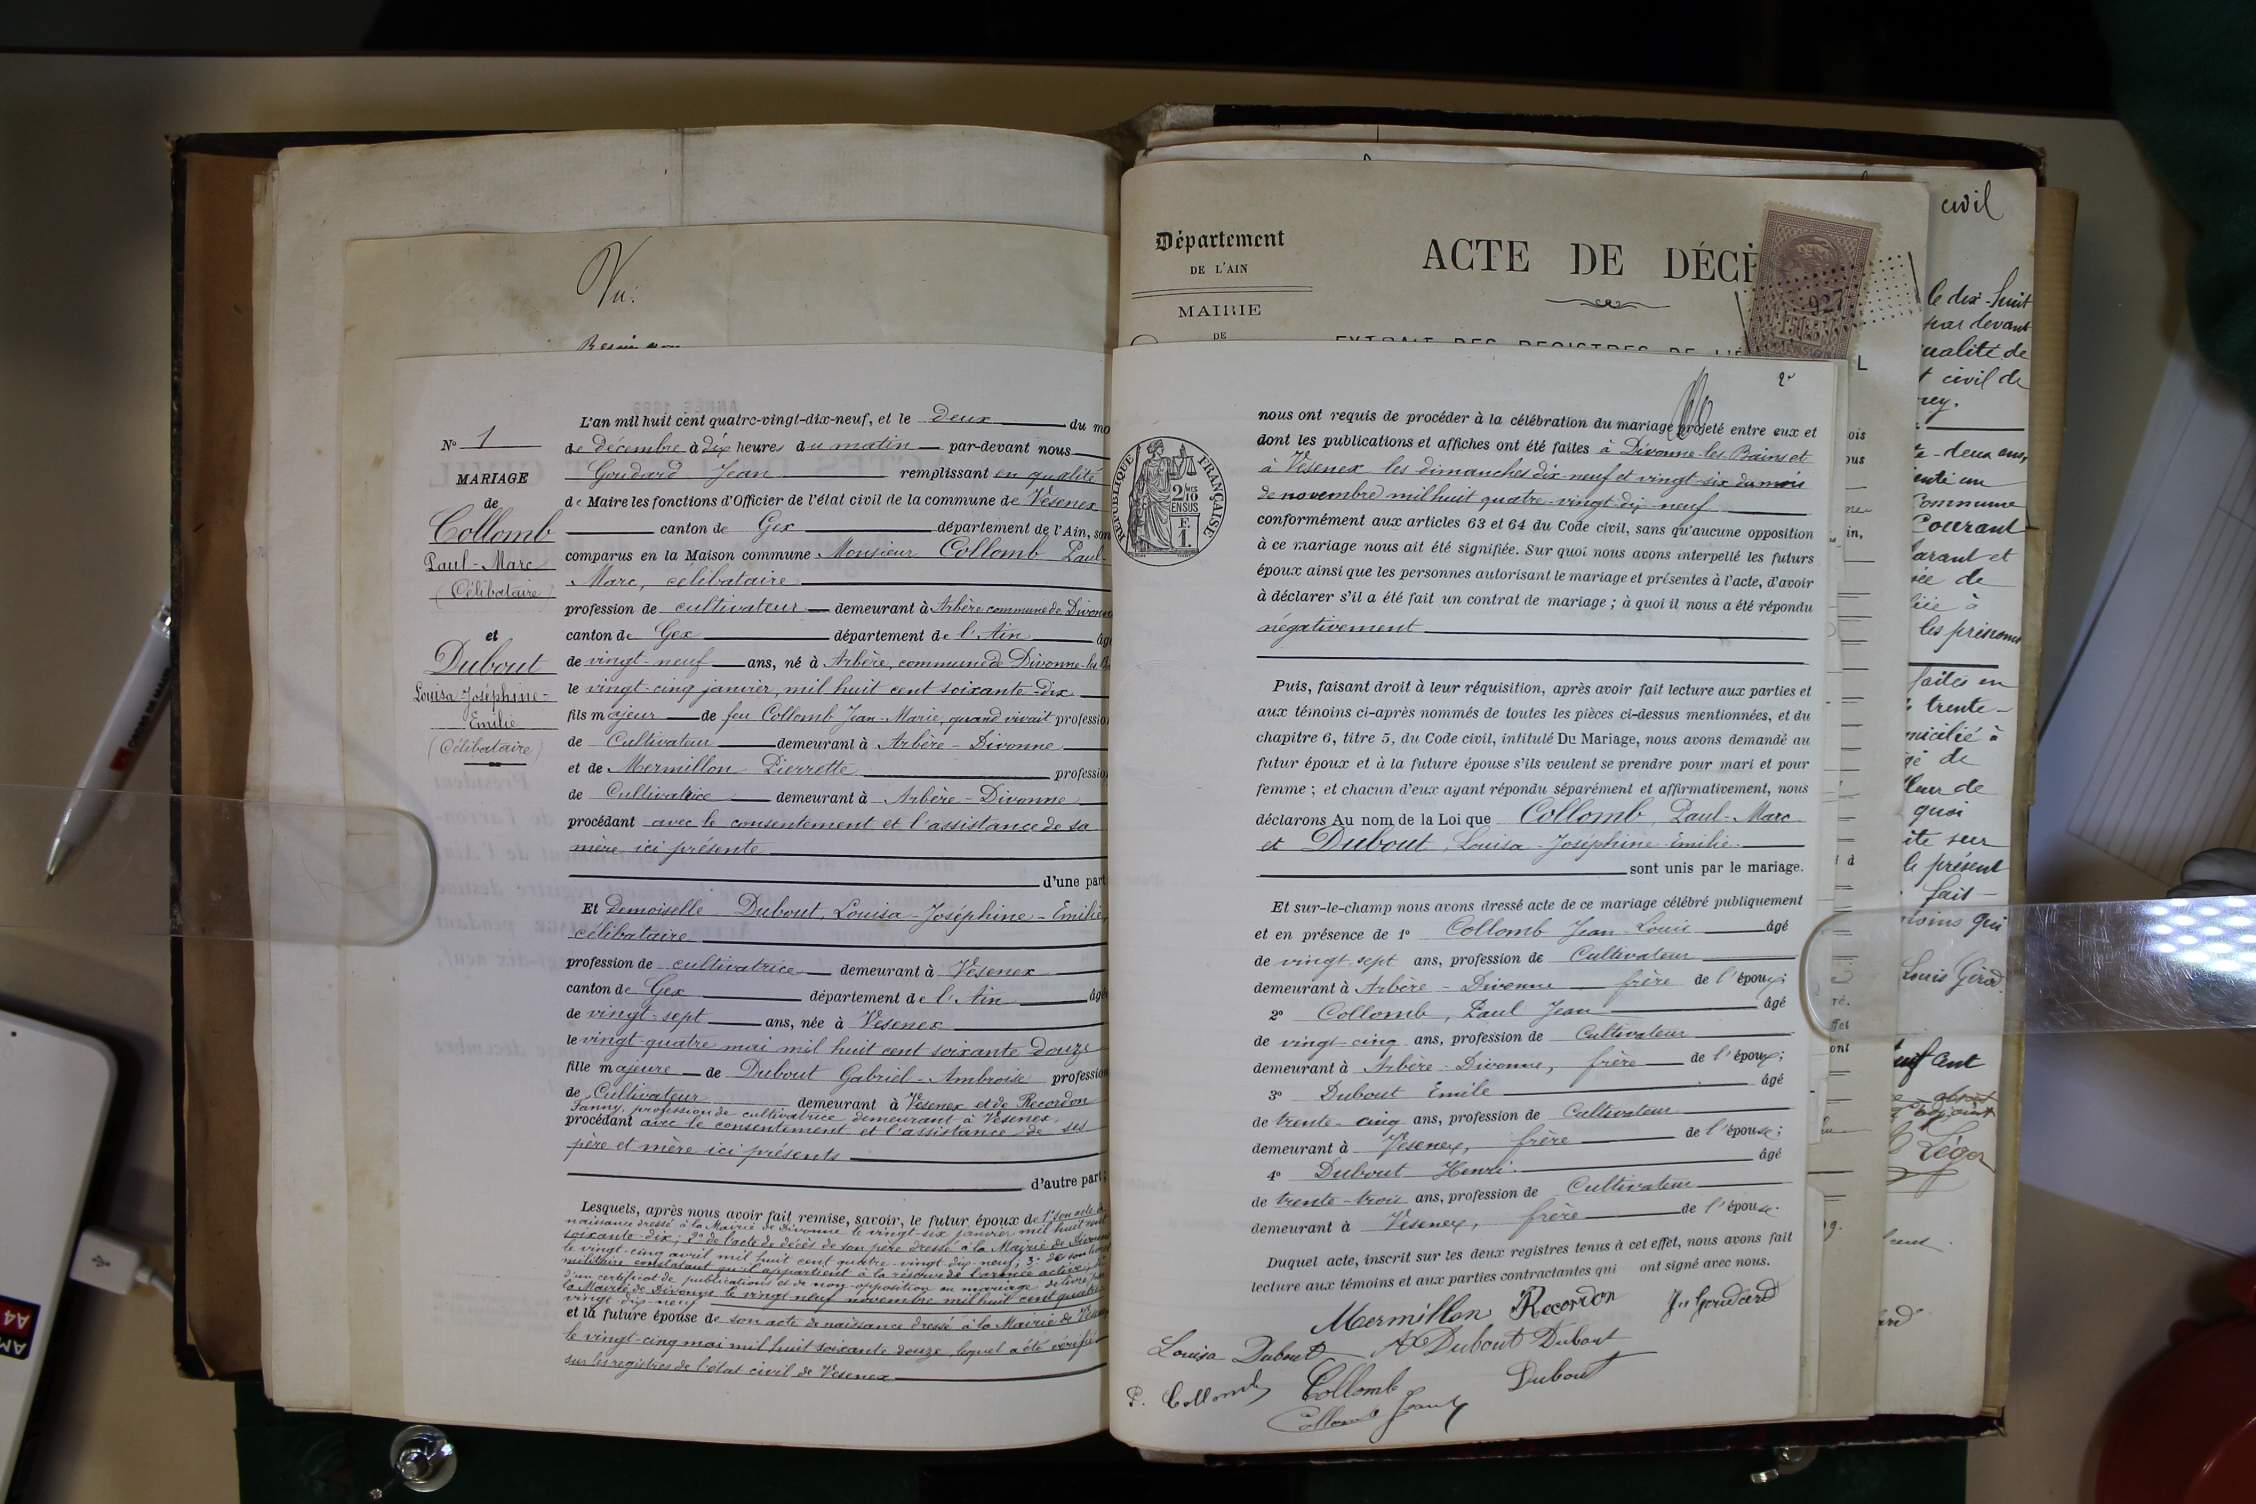 Vu:
N° 1
MARIAGE
de
Collomb
Paul-Marc
(Célibataire)
et
Dubout
Louisa Joséphine-
Emilie
(Célibataire)
L'an mil huit cent quatre-vingt-dix-neuf, et le deux du mo
de décembre à dix heures du matin par-devant nous
Goudard Jean remplissant en qualité
de Maire les fonctions d'Officier de l'état civil de la commune de Vésenex
canton de Gex département de l'Ain, son
comparus en la Maison commune Monsieur Collomb Paul-
Marc, célibataire
profession de cultivateur demeurant à Arbère commune de Divonne
canton de Gex département de l'Ain âg
de vingt-neuf ans, né à Arbère, commune de Divonne-les
le vingt-cinq janvier, mil huit cent soixante-dix
fils majeur de feu Collomb Jean-Marie, quand vivait profession
de Cultivateur demeurant à Arbère-Divonne
et de Mermillon Pierrette profession
de Cultivatrice demeurant à Arbère-Divonne
procédant avec le consentement et l'assistance de sa
mère ici présente
d'une part
Et demoiselle Dubout, Louisa-Joséphine-Emilie,
célibataire
profession de cultivatrice demeurant à Vésenex
canton de Gex département de l'Ain âgé
de vingt-sept ans, née à Vésenex
le vingt-quatre mai mil huit cent soixante douze
fille majeure de Dubout Gabriel-Ambroise profession
de Cultivateur demeurant à Vésenex et de Recordon
Fanny, profession de cultivatrice demeurant à Vésenex,
procédant avec le consentement et l'assistance de ses
père et mère ici présents
d'autre part;
Lesquels, après nous avoir fait remise, savoir, le futur époux de 1° son acte de
naissance dressé à la Mairie de Divonne le vingt-six janvier mil huit cent
soixante-dix; 2° de l'acte de décès de son père dressé à la Mairie de Divonne
le vingt-cinq avril mil huit cent quatre-vingt-dix-neuf; 3° de son livret
militaire constatant qu'il appartient à la réserve de l'armée active;
d'un certificat de publications et de non-opposition au mariage délivré par
la Mairie de Divonne le vingt-neuf novembre mil huit cent quatre
vingt dix-neuf
et la future épouse de son acte de naissance dressé à la Mairie de Vésenex
le vingt-cinq mai mil huit soixante douze, lequel a été vérifié
sur les registres de l'état civil de Vésenex
Département
DE L'AIN
MAIRIE
DE
ACTE DE DÉCÈ
EXTRAIT DES REGISTRES DE L'É
L
927
2
RÉPUBLIQUE FRANÇAISE
2 MES
10
EN SUS
F.
1.
nous ont requis de procéder à la célébration du mariage projeté entre eux et
dont les publications et affiches ont été faites à Divonne-les-Bains et
à Vésenex les dimanches dix-neuf et vingt-six du mois
de novembre mil huit quatre-vingt-dix-neuf
conformément aux articles 63 et 64 du Code civil, sans qu'aucune opposition
à ce mariage nous ait été signifiée. Sur quoi nous avons interpellé les futurs
époux ainsi que les personnes autorisant le mariage et présentes à l'acte, d'avoir
à déclarer s'il a été fait un contrat de mariage; à quoi il nous a été répondu
négativement
Puis, faisant droit à leur réquisition, après avoir fait lecture aux parties et
aux témoins ci-après nommés de toutes les pièces ci-dessus mentionnées, et du
chapitre 6, titre 5, du Code civil, intitulé Du Mariage, nous avons demandé au
futur époux et à la future épouse s'ils veulent se prendre pour mari et pour
femme; et chacun d'eux ayant répondu séparément et affirmativement, nous
déclarons Au nom de la Loi que Collomb, Paul-Marc
et Dubout, Louisa-Joséphine-Emilie.
sont unis par le mariage.
Et sur-le-champ nous avons dressé acte de ce mariage célébré publiquement
et en présence de 1° Collomb Jean-Louis âgé
de vingt-sept ans, profession de Cultivateur
demeurant à Arbère-Divonne frère de l'époux;
2° Collomb, Paul Jean âgé
de vingt-cinq ans, profession de Cultivateur
demeurant à Arbère-Divonne, frère de l'époux;
3° Dubout Emile âgé
de trente-cinq ans, profession de Cultivateur
demeurant à Vésenex, frère de l'épouse;
4° Dubout Henri. âgé
de trente-trois ans, profession de Cultivateur
demeurant à Vésenex, frère de l'épouse.
Duquel acte, inscrit sur les deux registres tenus à cet effet, nous avons fait
lecture aux témoins et aux parties contractantes qui ont signé avec nous.
Mermillon Recordon Jn Goudard
Louisa Dubout A Dubout Dubout
P. Collomb Collomb Dubout
Collomb Jean
civil
le dix-huit
par devant
ualité de
t civil de
rey.
te-deux ans,
Commune
Courant
arant et
ée de
liée à
les prénoms
faites en
trente-
micilié à
gé de
lleur de
quoi
ite sur
le présent
fait
moins qui
Louis Girod
neuf cent
Léger